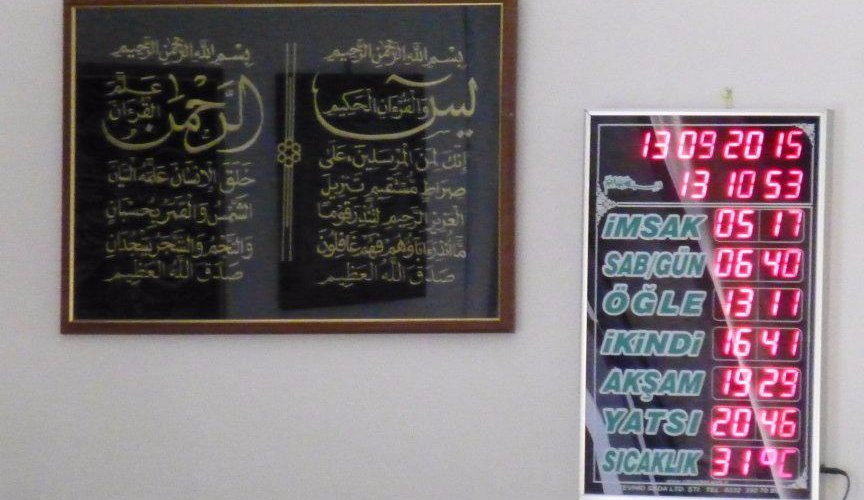 بسم الله الرحمن الرحيم
يس والقرءان الحكيم
إنك لمن المرسلين على
صراط مستقيم تنزيل
العزيز الرحيم لتنذر قوما
ما أنذر ءاباؤهم فهم غافلون
صدق الله العظيم
بسم الله الرحمن الرحيم
الرحمن علم القرءان
خلق الإنسان علمه البيان
الشمس والقمر بحسبان
والنجم والشجر يسجدان
صدق الله العظيم
13 09 2015
13 10 53
İMSAK 05 17
SAB/GÜN 06 40
ÖĞLE 13 11
İKİNDİ 16 41
AKŞAM 19 29
YATSI 20 46
SICAKLIK 31°C
LTD. ŞTİ. TEL: 0332